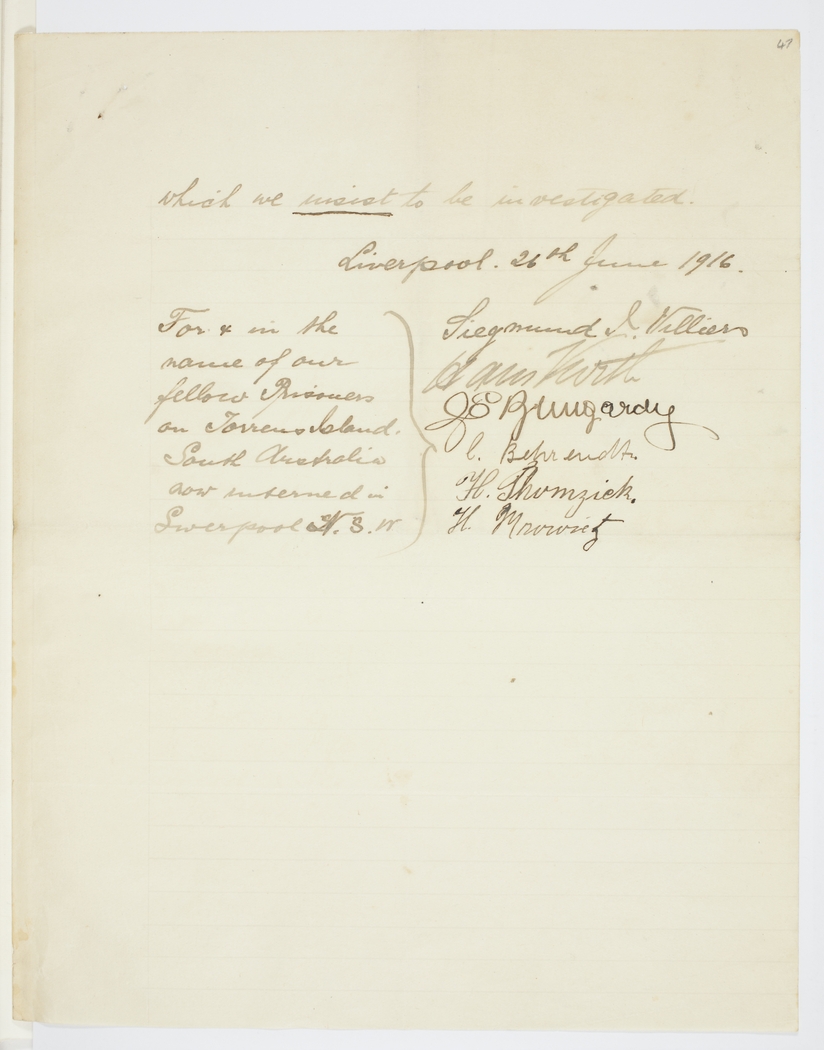 47
which we insist to be investigated.
Liverpool. 26th June 1916.
For & in the
name of our
fellow Prisoners
on Torrens Island.
South Australia
now interned in
Liverpool N. S. W
Siegmund I. Villiers
J E Bungardy
C. Behrendt.
H. Thomzick.
H.